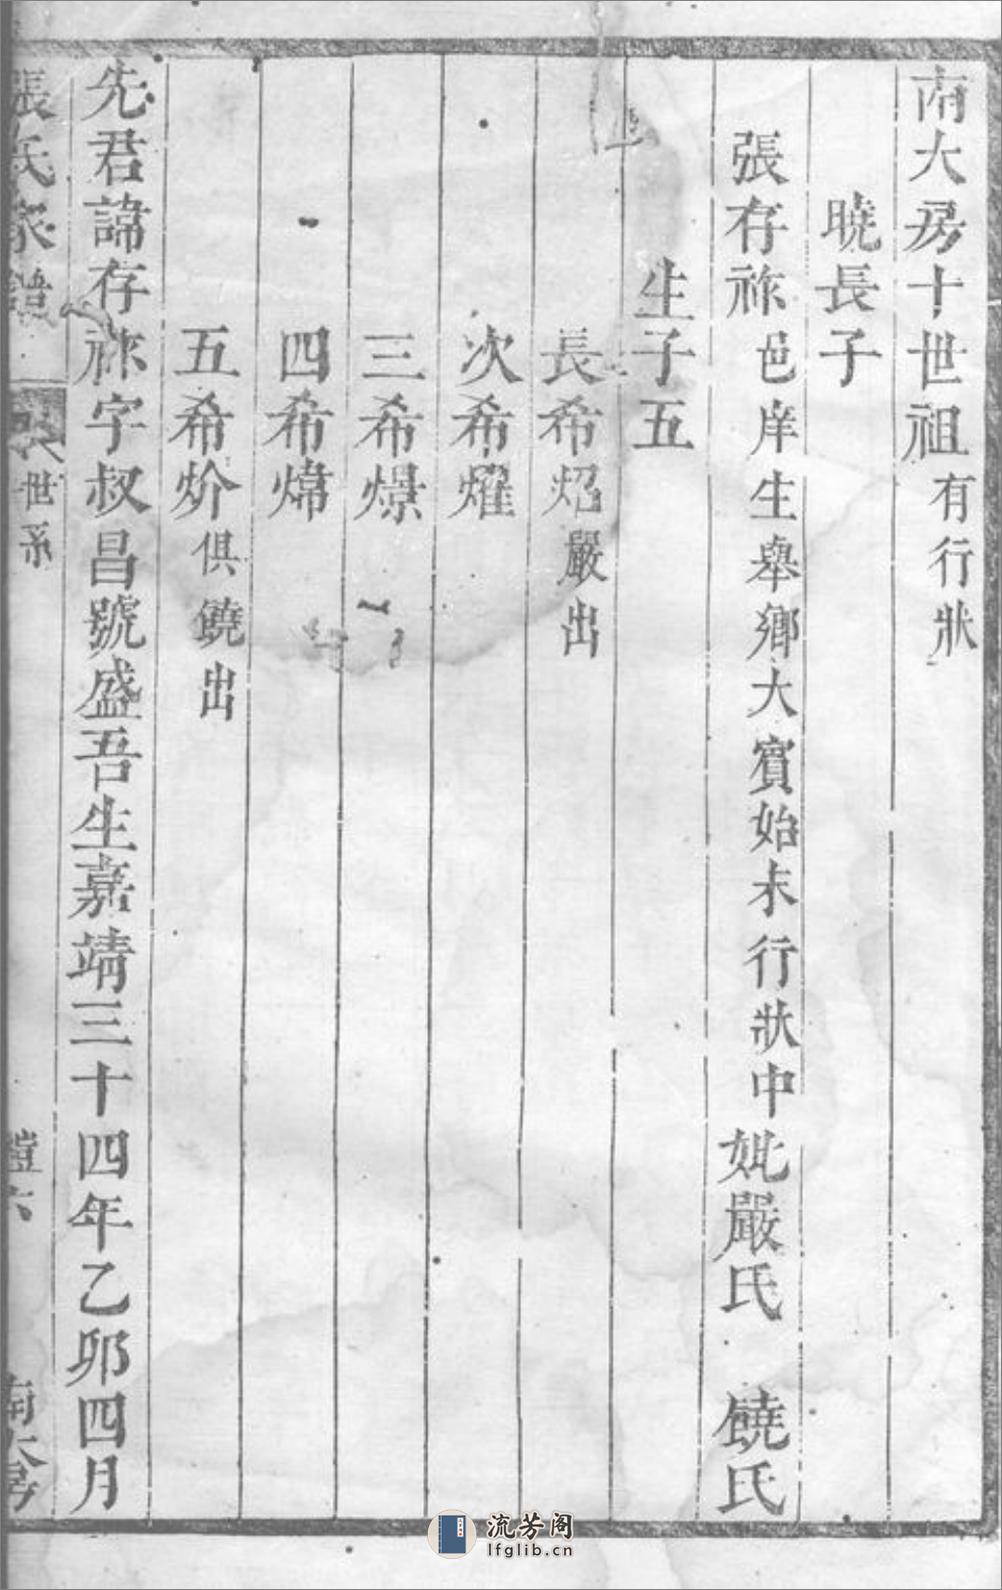 南大房十世祖有行狀
曉長子
張存祢邑庠生舉鄉大賓始末行狀中妣嚴氏 饒氏
生子五
長希炤嚴出
次希燿
三希燝
四希煒
五希炌俱饒出
先君諱存祢字叔昌號盛吾生嘉靖三十四年乙卯四月
張氏家譜 世系 六 南大房
流芳阁
lfglib.cn